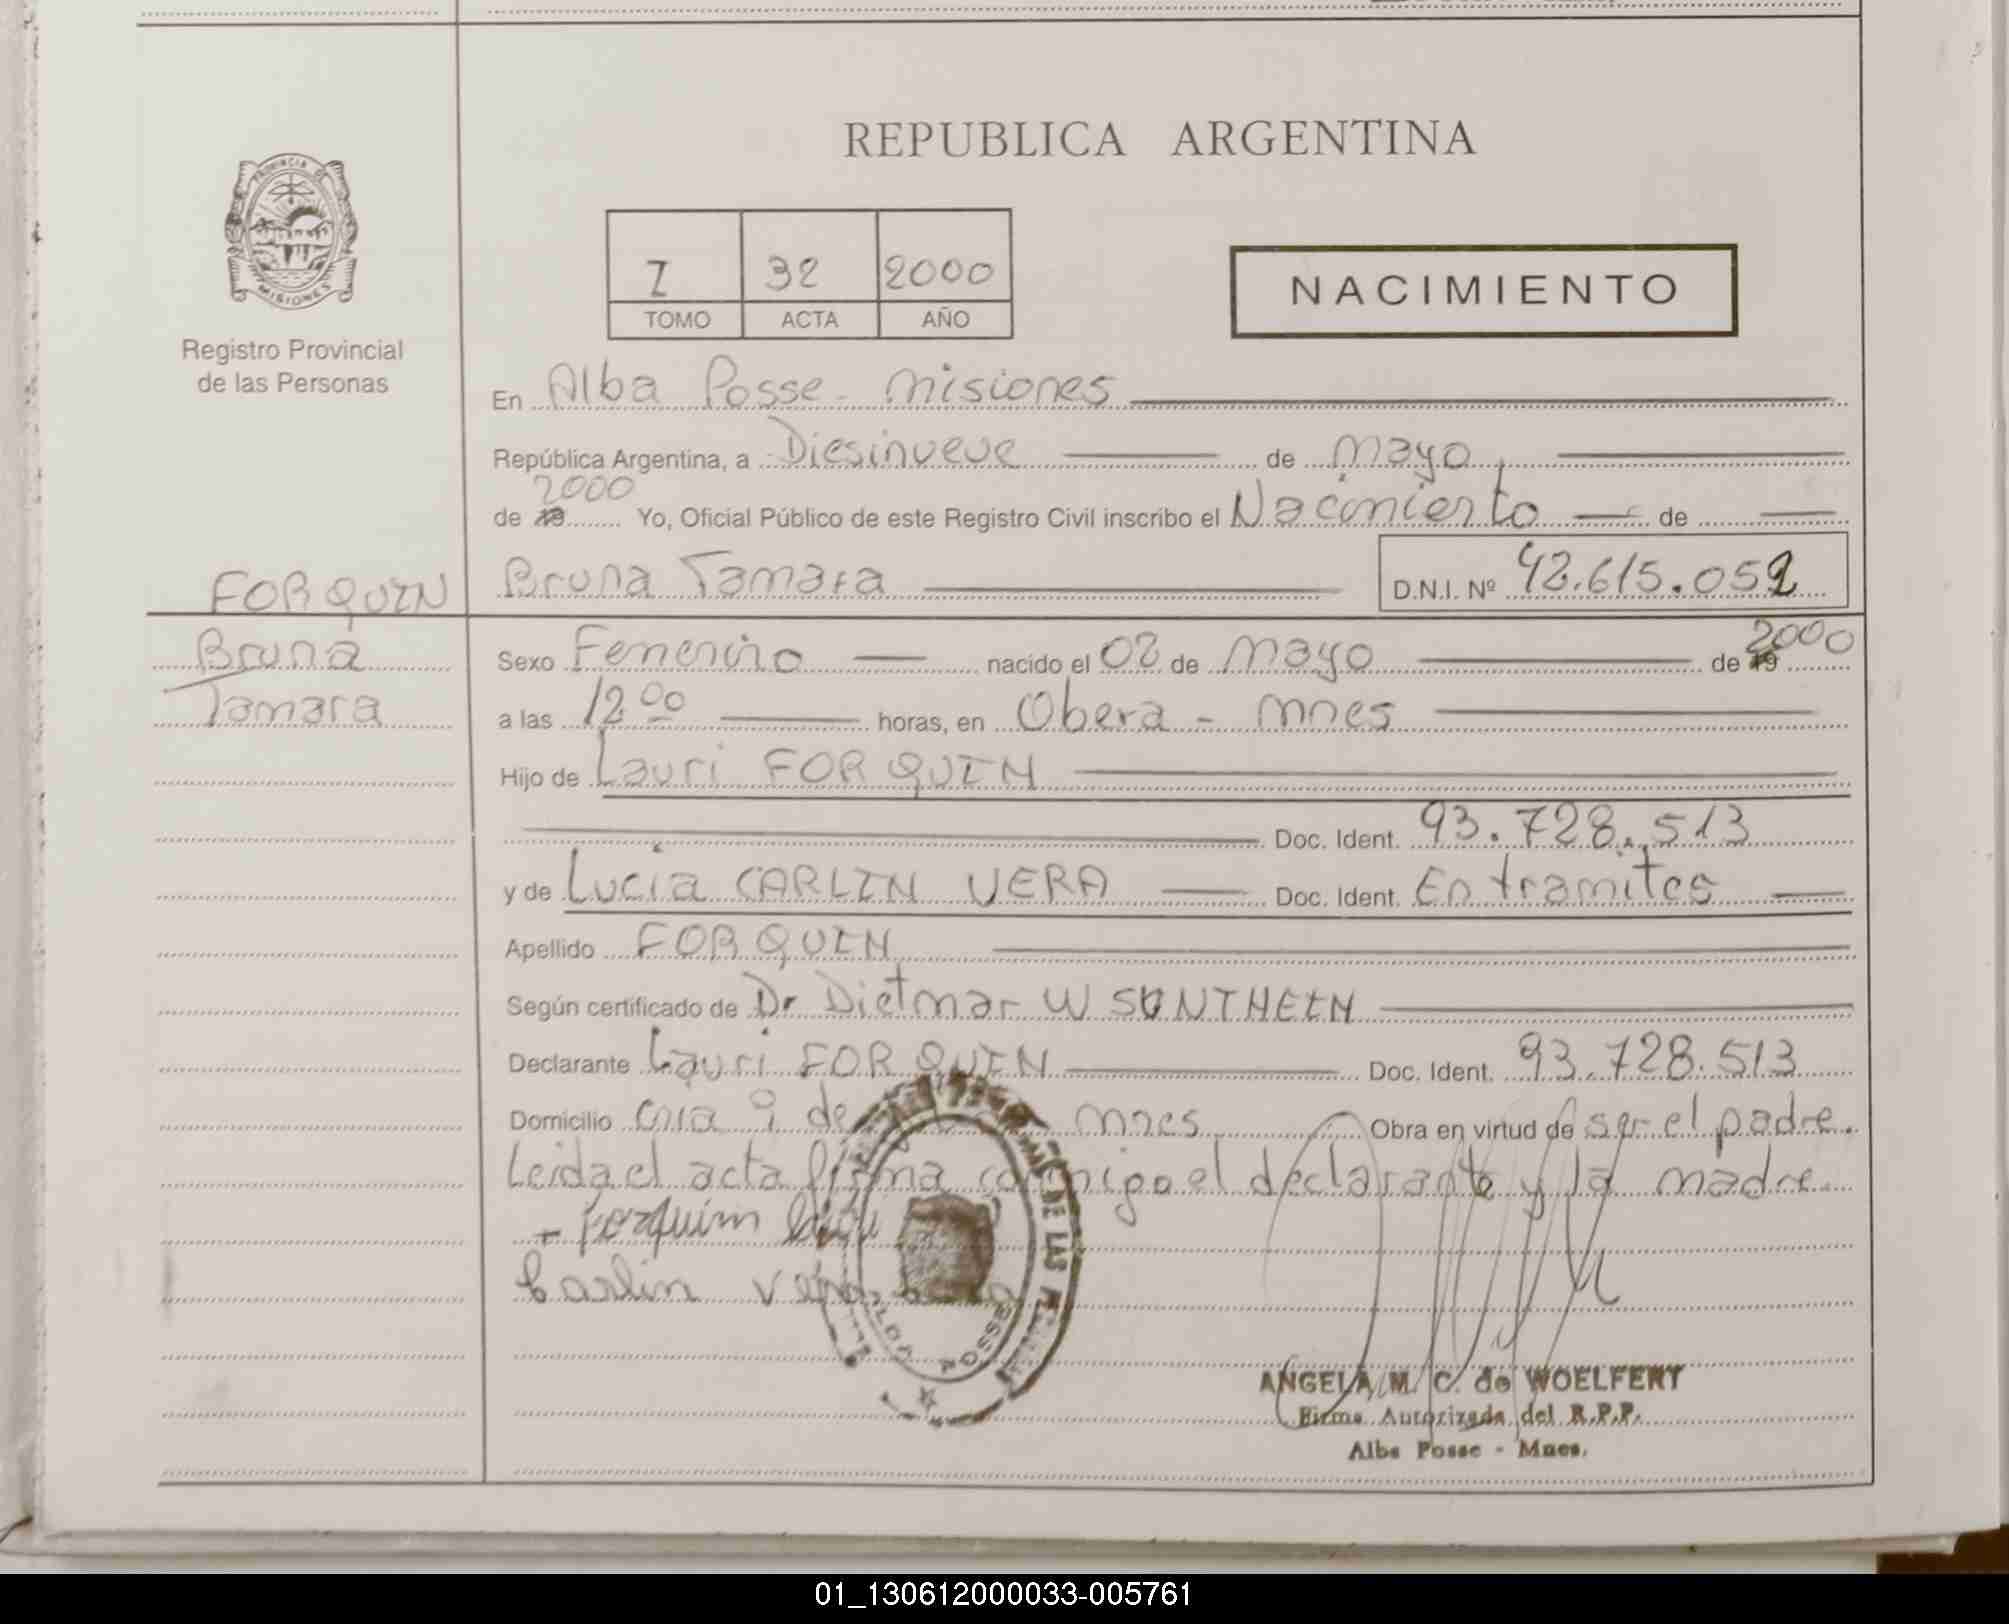 REPUBLICA ARGENTINA
PROVINCIA DE
MISIONES
Registro Provincial
de las Personas
I 32 2000
TOMO ACTA AÑO
NACIMIENTO
En Alba Posse - Misiones
República Argentina, a Diesinueve de Mayo
2000
de 19 Yo, Oficial Público de este Registro Civil inscribo el Nacimiento de
FORQUIN
Bruna Tamara D.N.I. Nº 42.615.052
Bruna
Tamara
Sexo Femenino nacido el 02 de Mayo de 19 2000
a las 12 00 horas, en Obera - Mnes
Hijo de Lauri FORQUIN
Doc. Ident. 93.728.513
y de Lucia CARLIN VERA Doc. Ident. En tramites
Apellido FORQUIN
Según certificado de Dr Dietmar W SONTHEIN
Declarante Lauri FORQUIN Doc. Ident. 93.728.513
Domicilio 9 de Mnes Obra en virtud de ser el padre.
Leida el acta firma conmigo el declarante y la madre.
Forquim
Carlin Vera
DE LAS
ALBA POSSE
ANGELA M. C. de WOELFERT
Firma Autorizada del R.P.P.
Alba Posse - Mnes.
01_130612000033-005761